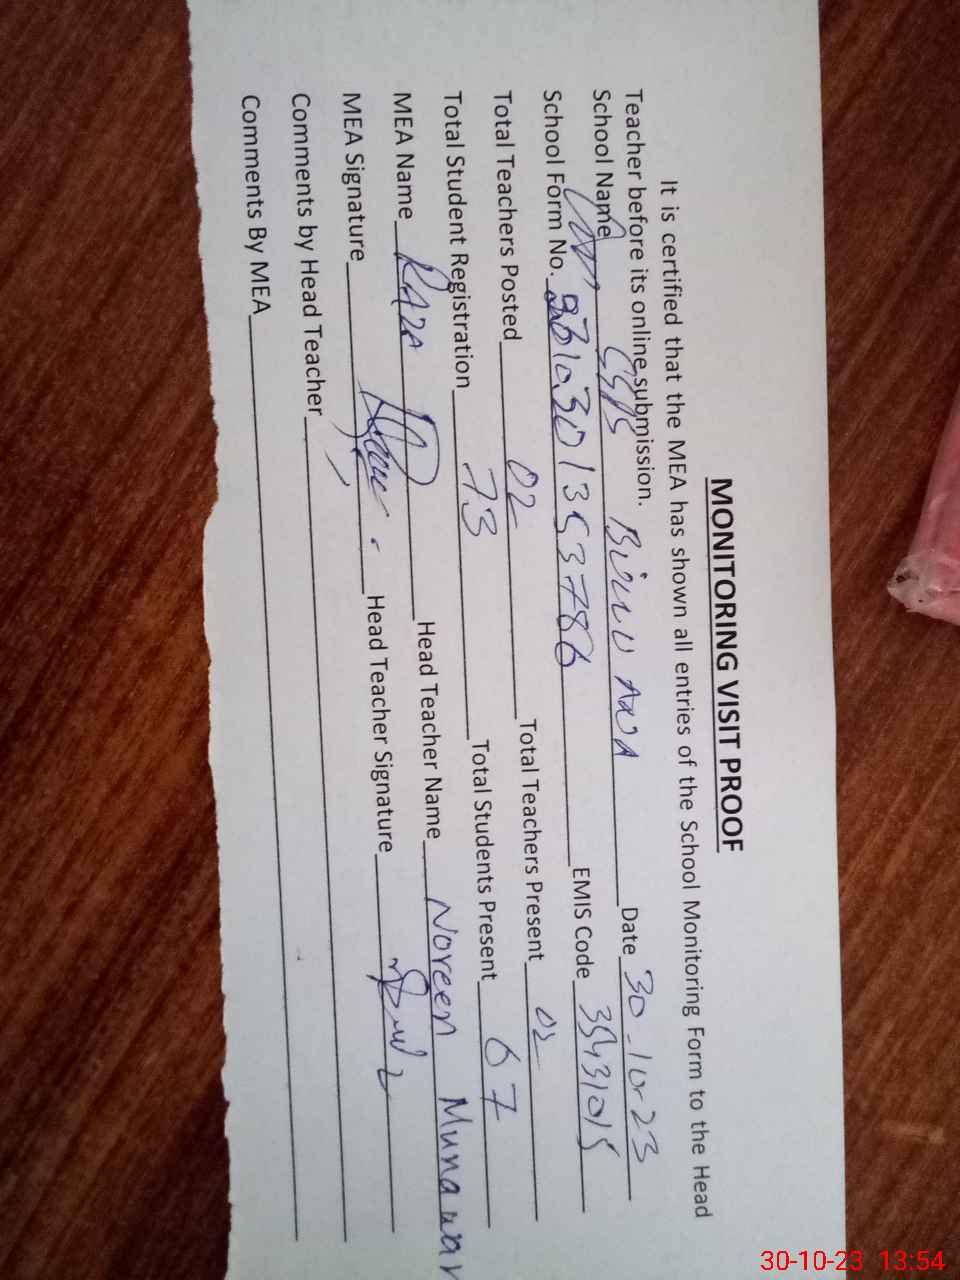 MONITORING VISIT PROOF
It is certified that the MEA has shown all entries of the School Monitoring Form to the Head
Teacher before its online submission.
School Name GGPS Date 30-10-23
School Form No. EMIS Code
Total Teachers Posted 02 Total Teachers Present 02
Total Student Registration 73 Total Students Present 67
MEA Name Raza Head Teacher Name Noreen Munawar
MEA Signature Head Teacher Signature
Comments by Head Teacher
Comments By MEA
30-10-23 13:54